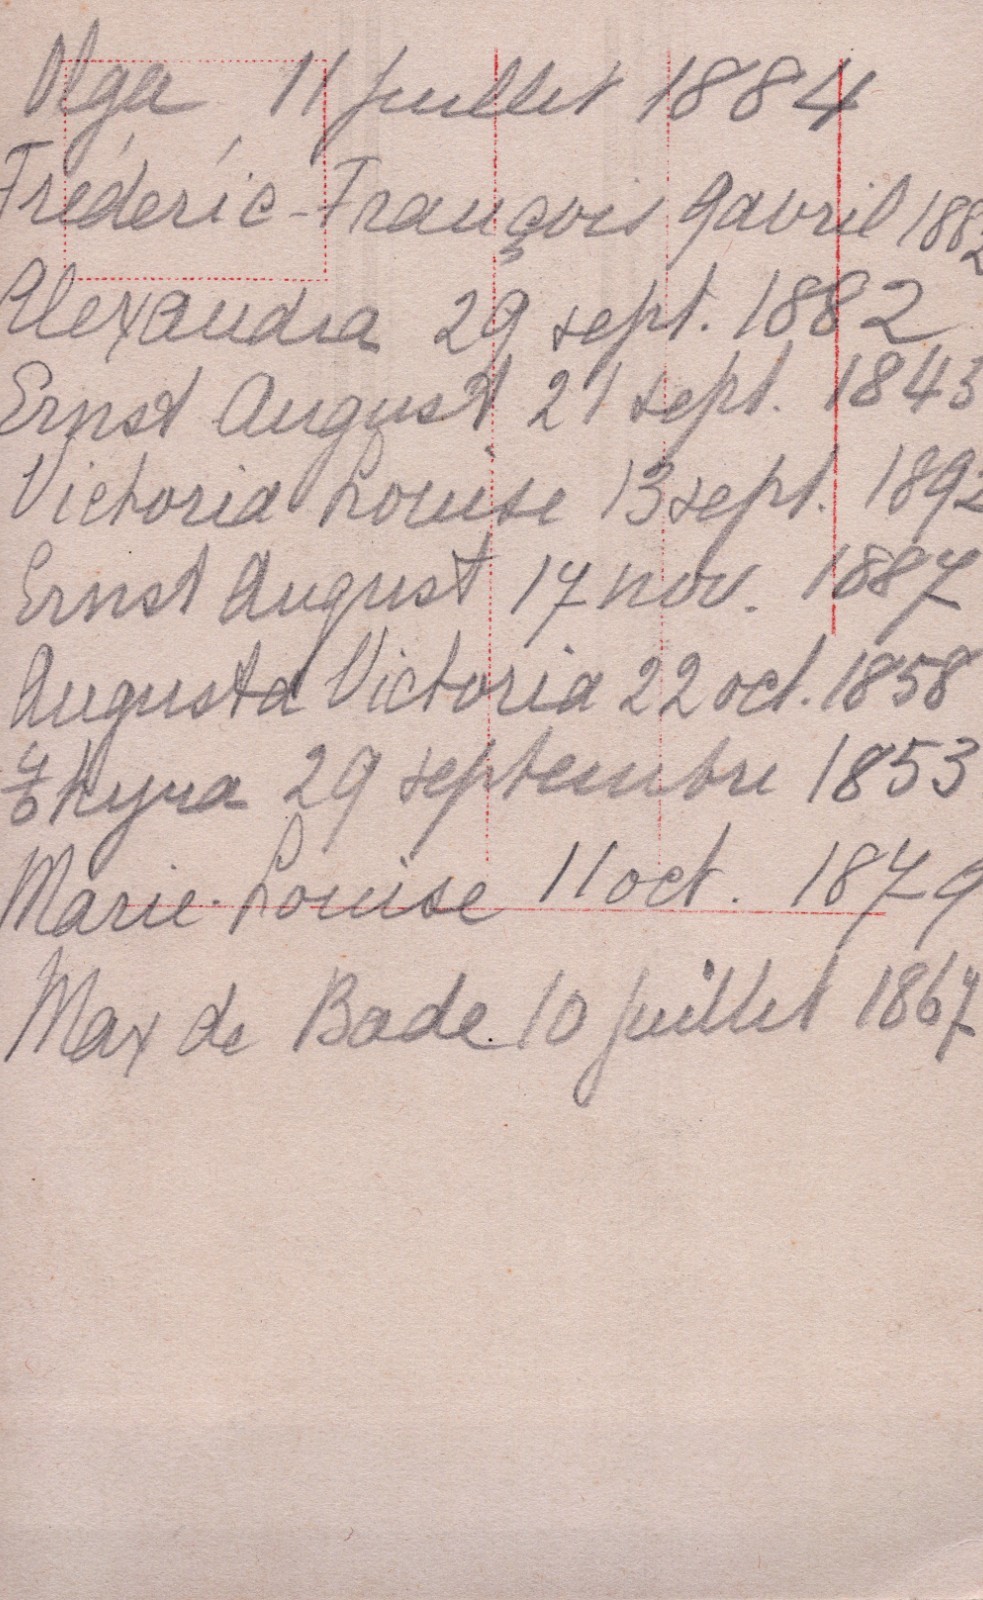 Olga 11 juillet 1884
Frédéric-François 9 avril 1882
Alexandra 29 sept. 1882
Ernst August 21 sept. 1843
Victoria Louise 13 sept. 1892
Ernst August 17 nov. 1887
Augusta Victoria 22 oct. 1858
Thyra 29 septembre 1853
Marie-Louise 11 oct. 1879
Max de Bade. 10 juillet 1867